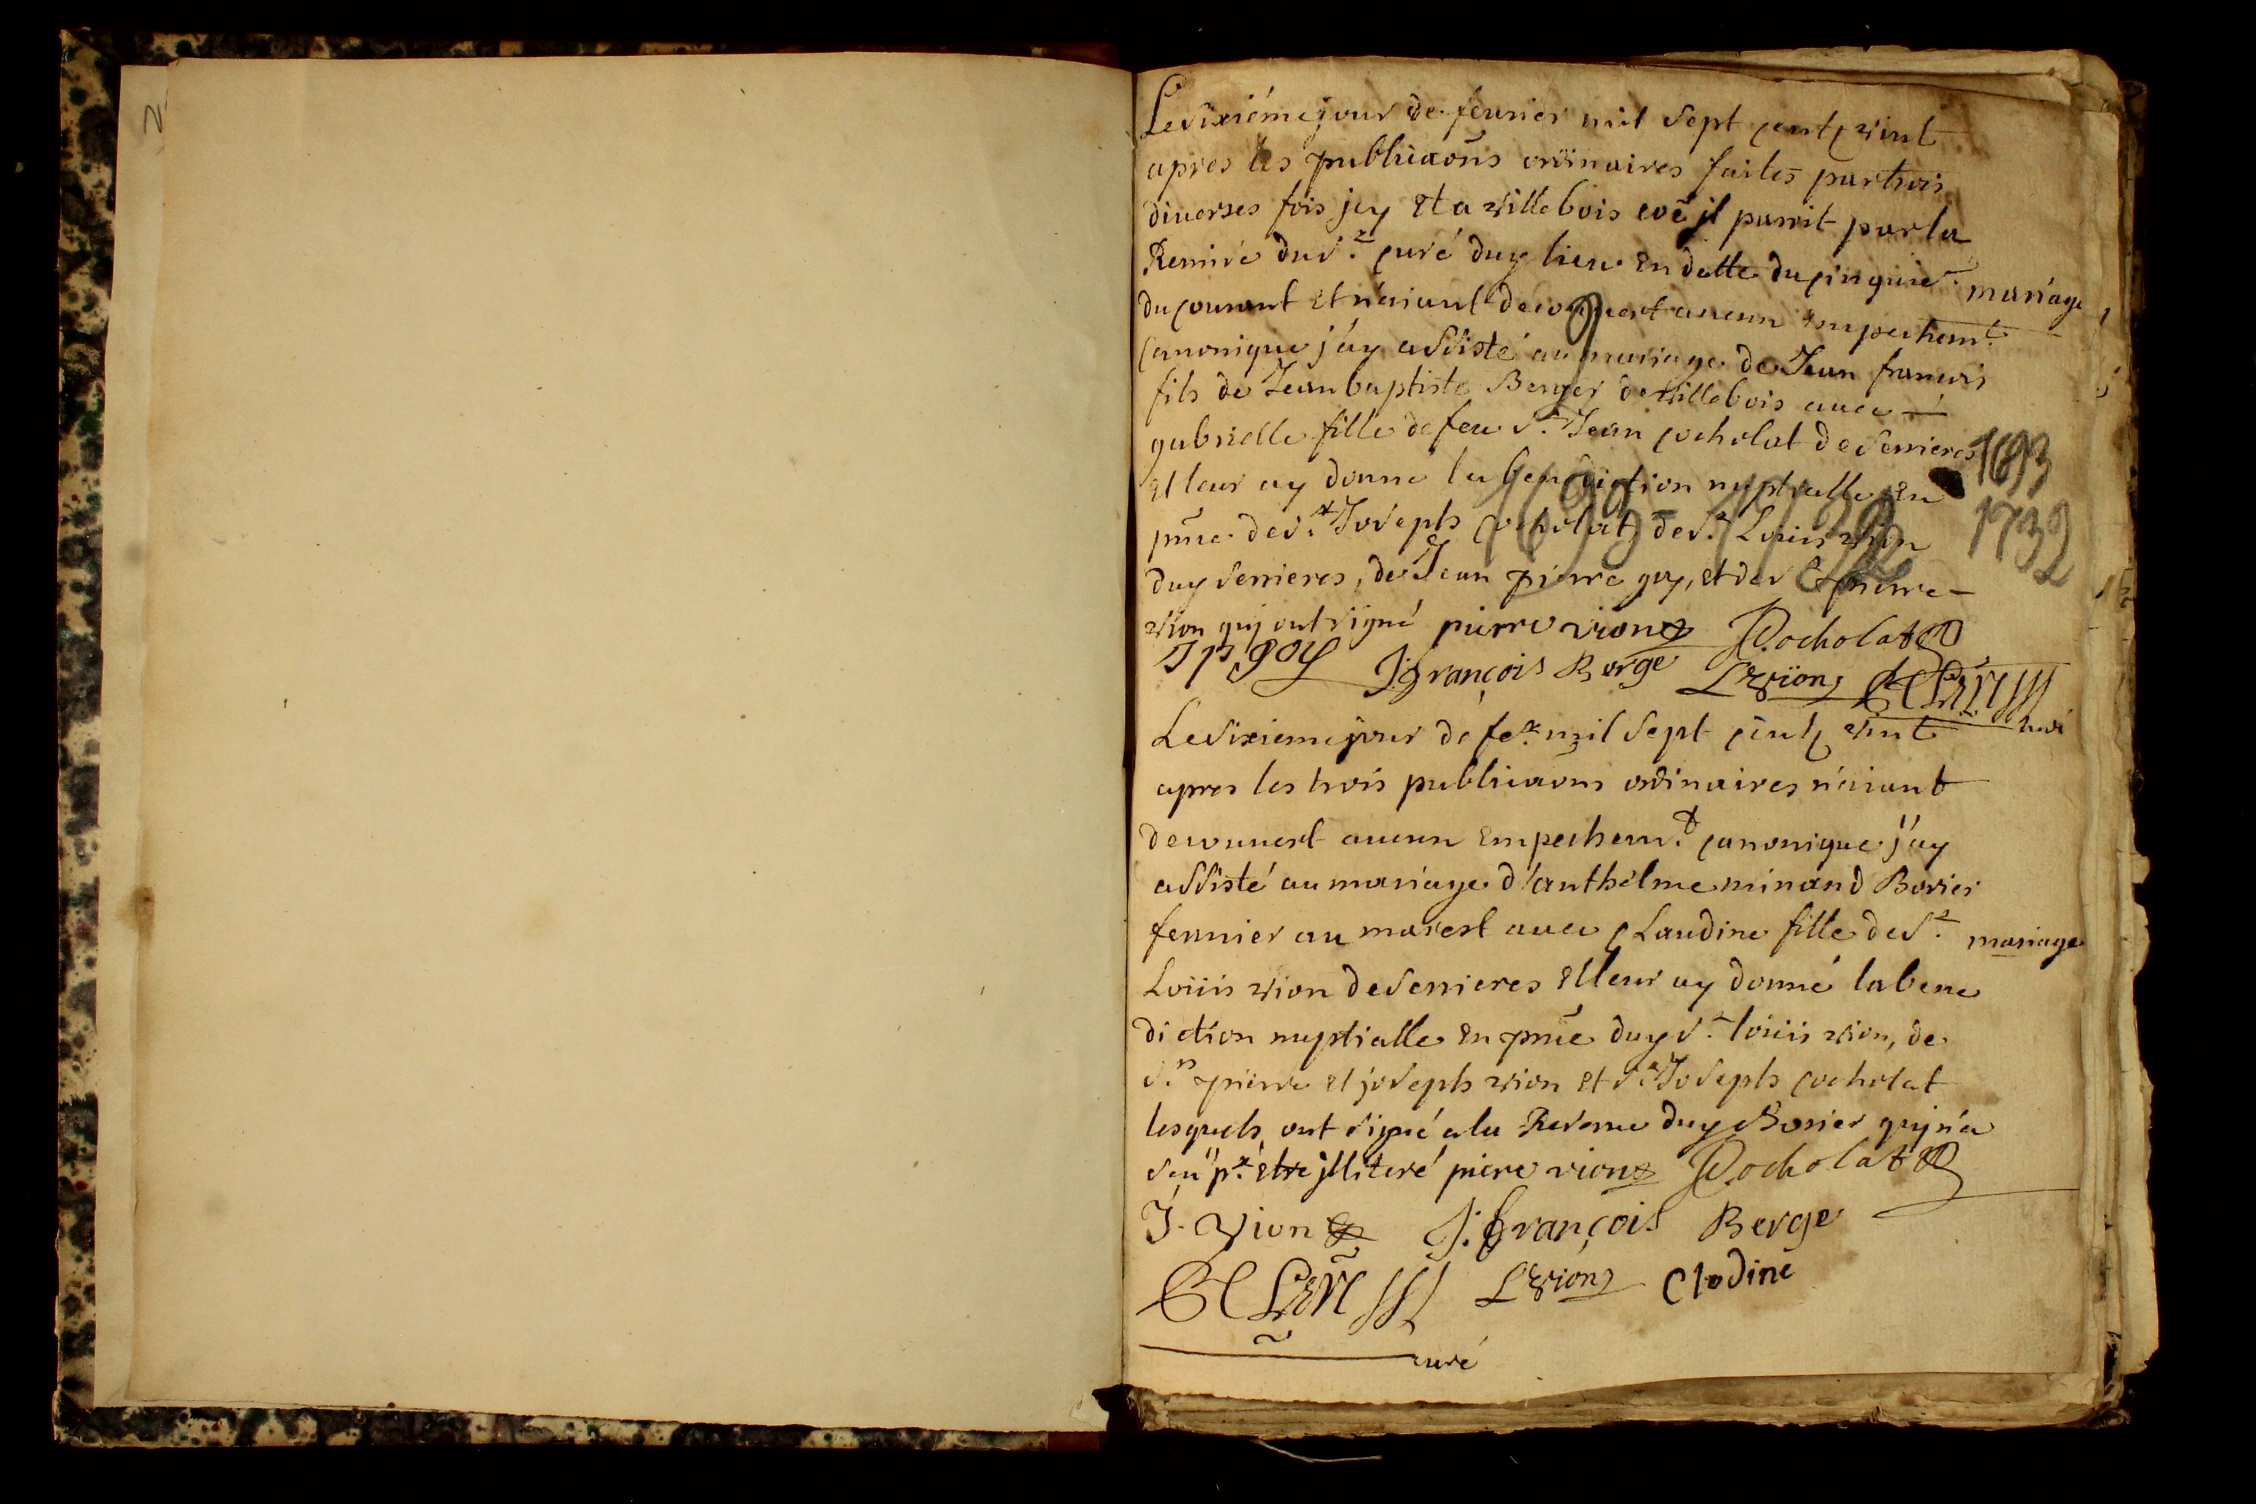 Le sixiéme jour de feurier mil sept centz vint
apres les publicaõns ordinaires faites par trois
diuerses fois jcy Et a villebois coẽ jl paroit par la
Remise du sr. curé duy lieu En datte du cinquie.
mariage
du courant Et n'aiant decouuert aucun Empechemt.
canonique j'ay assisté au mariage de Jean francois
fils de Jean baptiste Berger de villebois auec
gabrielle fille de feu sr. Jean cocholat de serrieres
1693
Et leur ay donne la benediction nuptialle En
1693 - 1732
pñce de sr. Joseph cocholat, de sr. Louis vion
1732
duy serrieres, de Jean pierre goy, et de sr. pierre
vion quj ont signé pierre vion J Cocholat
J p goy J: françois Berge L vion
curé
Le sixieme jour de fer. mil sept centz vint
apres les trois publicaõns ordinaires n'aiant
decouuert aucun Empechemt. canonique j'ay
assisté au mariage d'anthelme minand Borier
fermier au marest auec claudine fille de sr.
mariage
Loüis vion de serrieres Et leur ay donné la bene
diction nuptialle En pñce duy sr. loüis vion, de
srs. pierre et joseph vion et sr. Joseph cocholat
lesquels ont signé a la Reserue duy Borier quj n'a
seu pr. Etre jlliteré piere vion J Cocholat
J. vion J: françois Berge
L vion clodine
curé